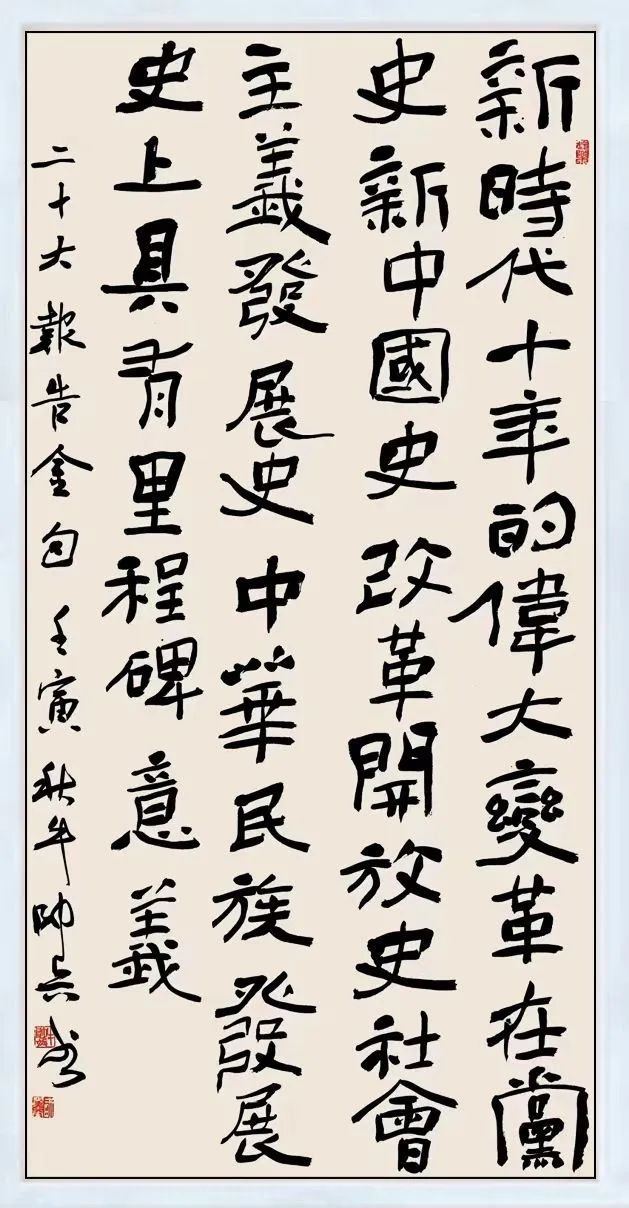 新時代十年的偉大變革在黨
史新中國史改革開放史社會
主義發展史中華民族發展
史上具有里程碑意義
二十大報告金句壬寅秋牛帥兵书